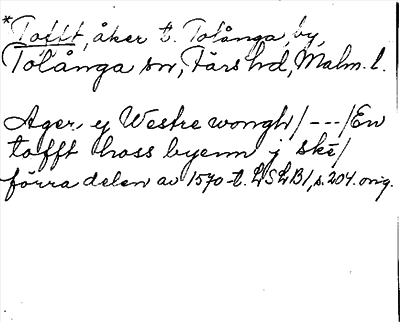 *Tofft, åker t. Tolånga by,
Tolånga sn, Färs hd, Malm. l.
Ager y Westre wongh/---/En
tofft hoss byenn j ske/
förra delen av 1570-t. LSLB1, s. 204. orig.